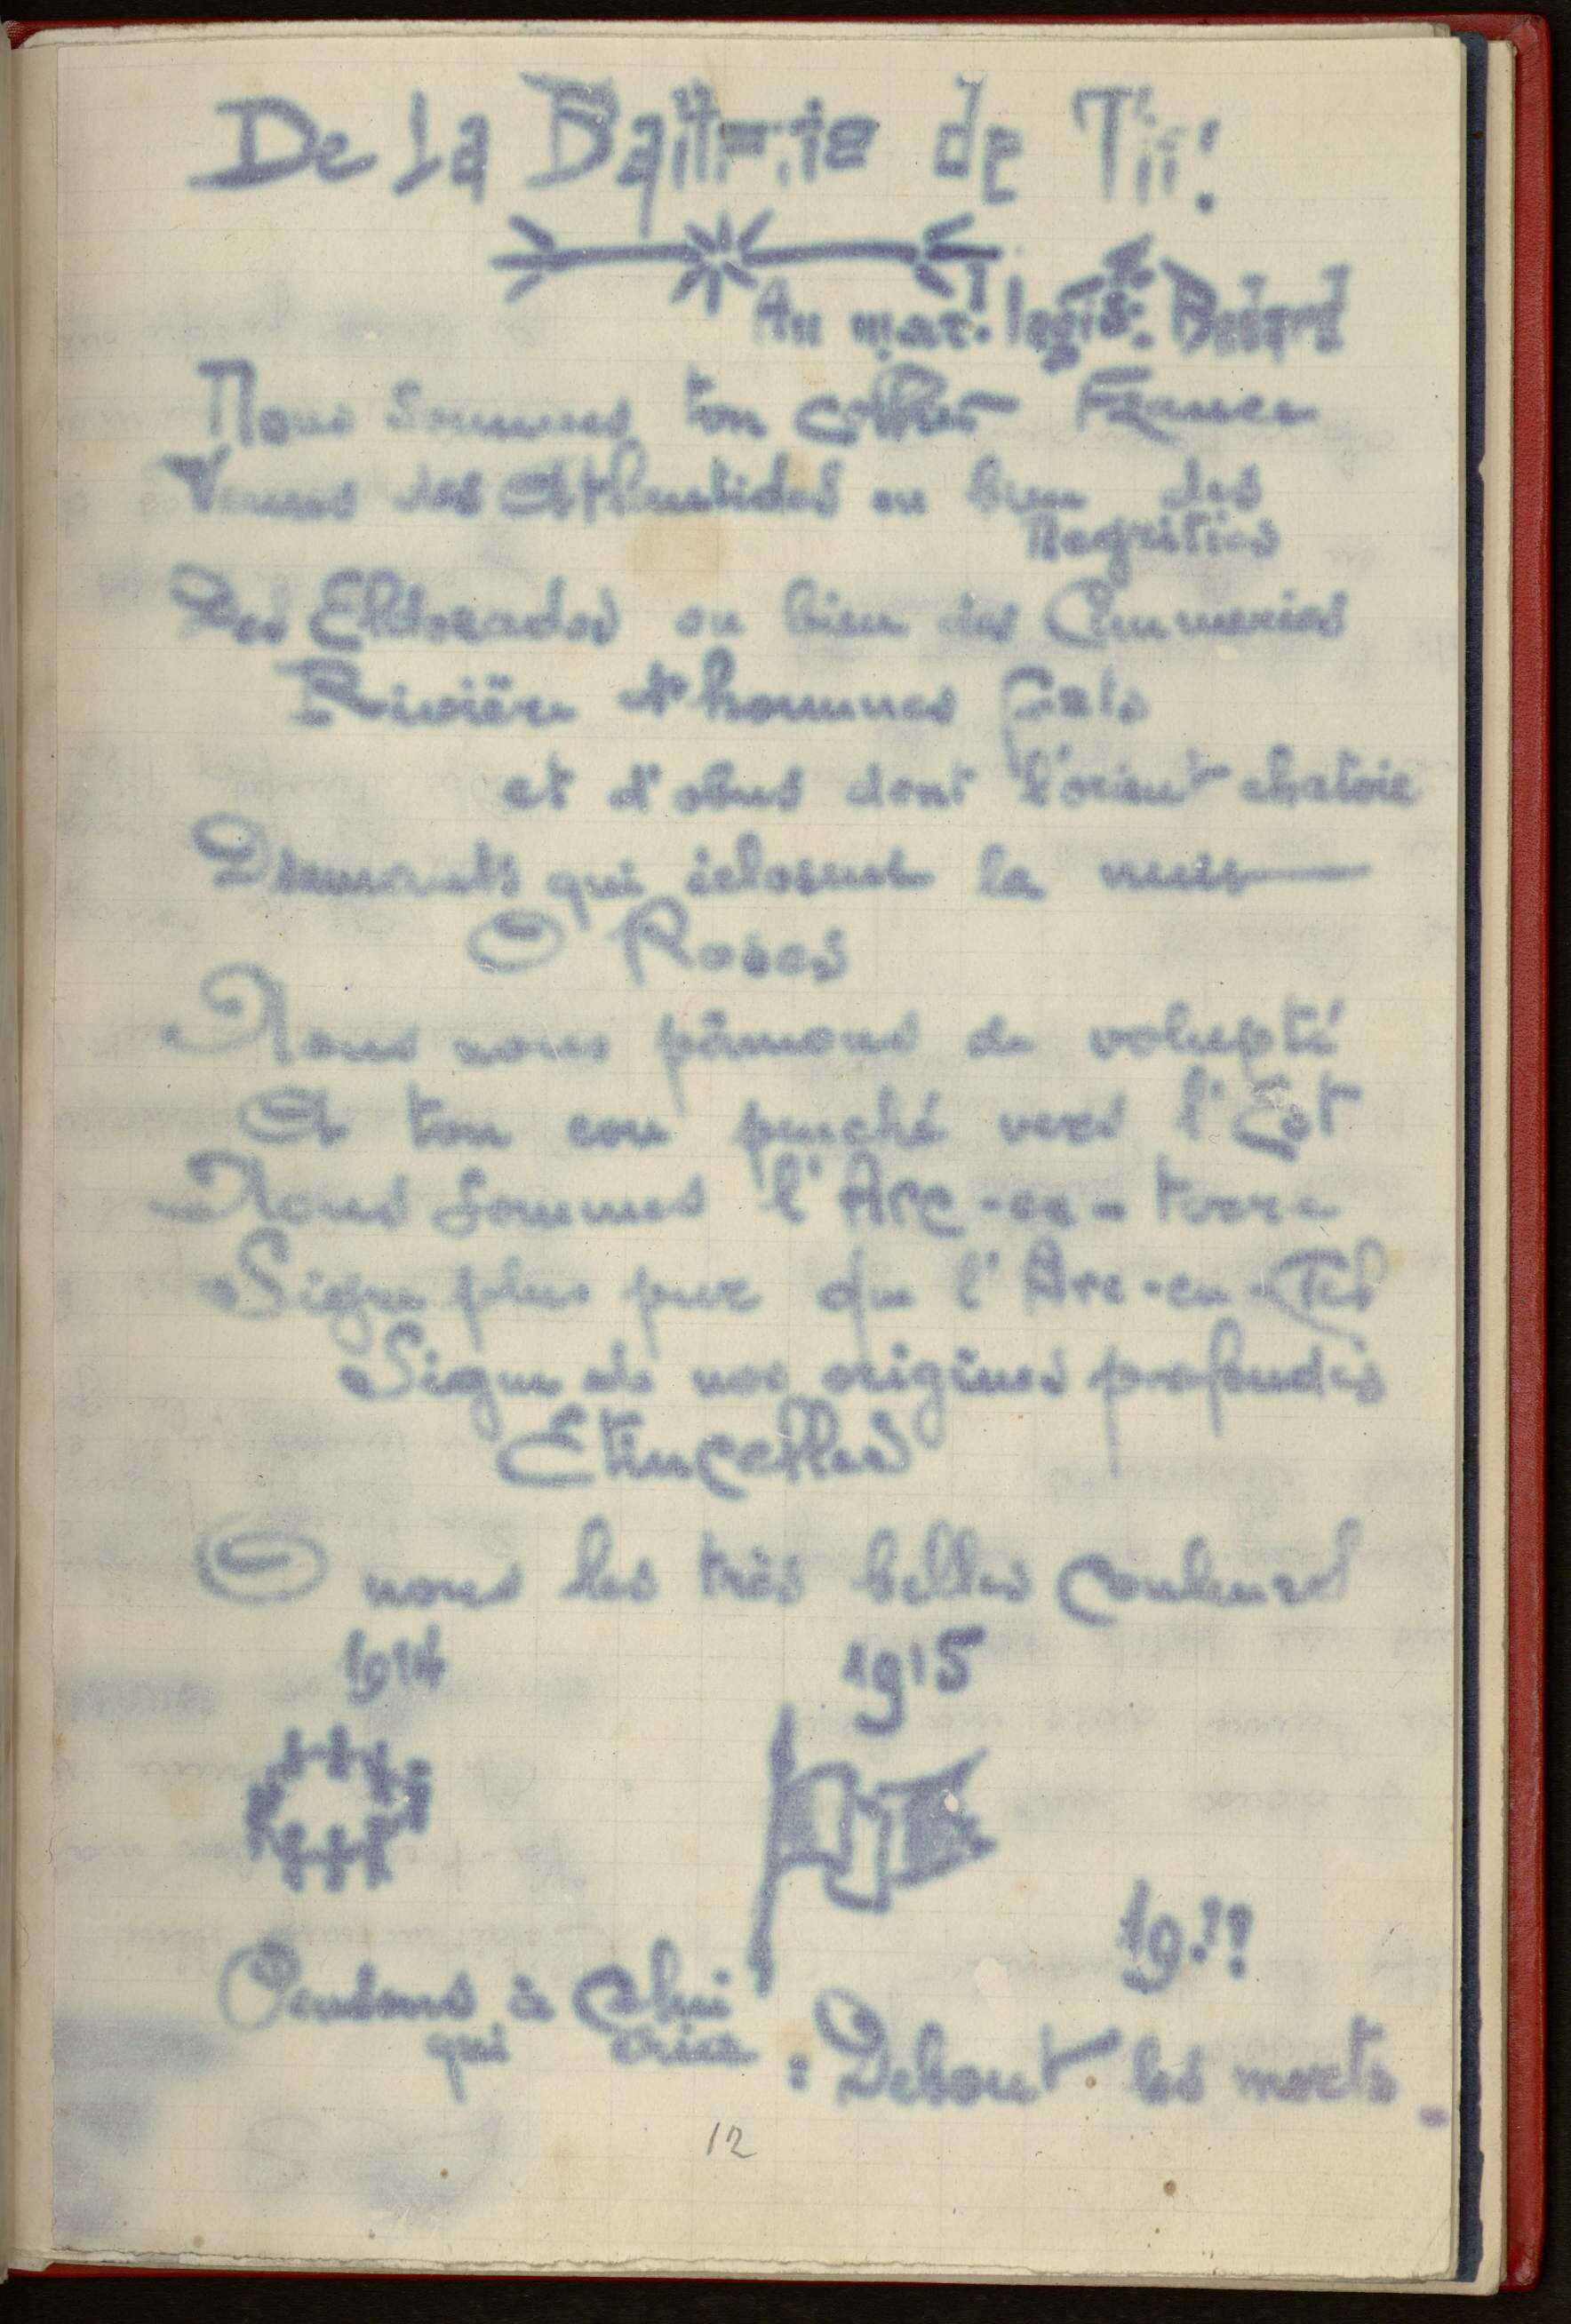 De la Batterie de Tir.
Au mar. logis. Bodard
Nous sommes ton collier France
Venus des Atlantides ou bien des
Negrities
Des Eldorados ou bien des Cimmeries
Rivière d'hommes forts
et d'obus dont l'orient chatoie
Diamants qui éclosent la nuit
O Roses
Nous nous pâmons de volupté
A ton cou penché vers l'Est
Nous sommes l'Arc-en-terre
Signe plus pur que l'Arc-en-Ciel
Signe de nos origines profondes
Etincelles
O nous les très belles couleurs
1914 1915
19!!
Pensons à Celui
qui crie : Debout les morts
12